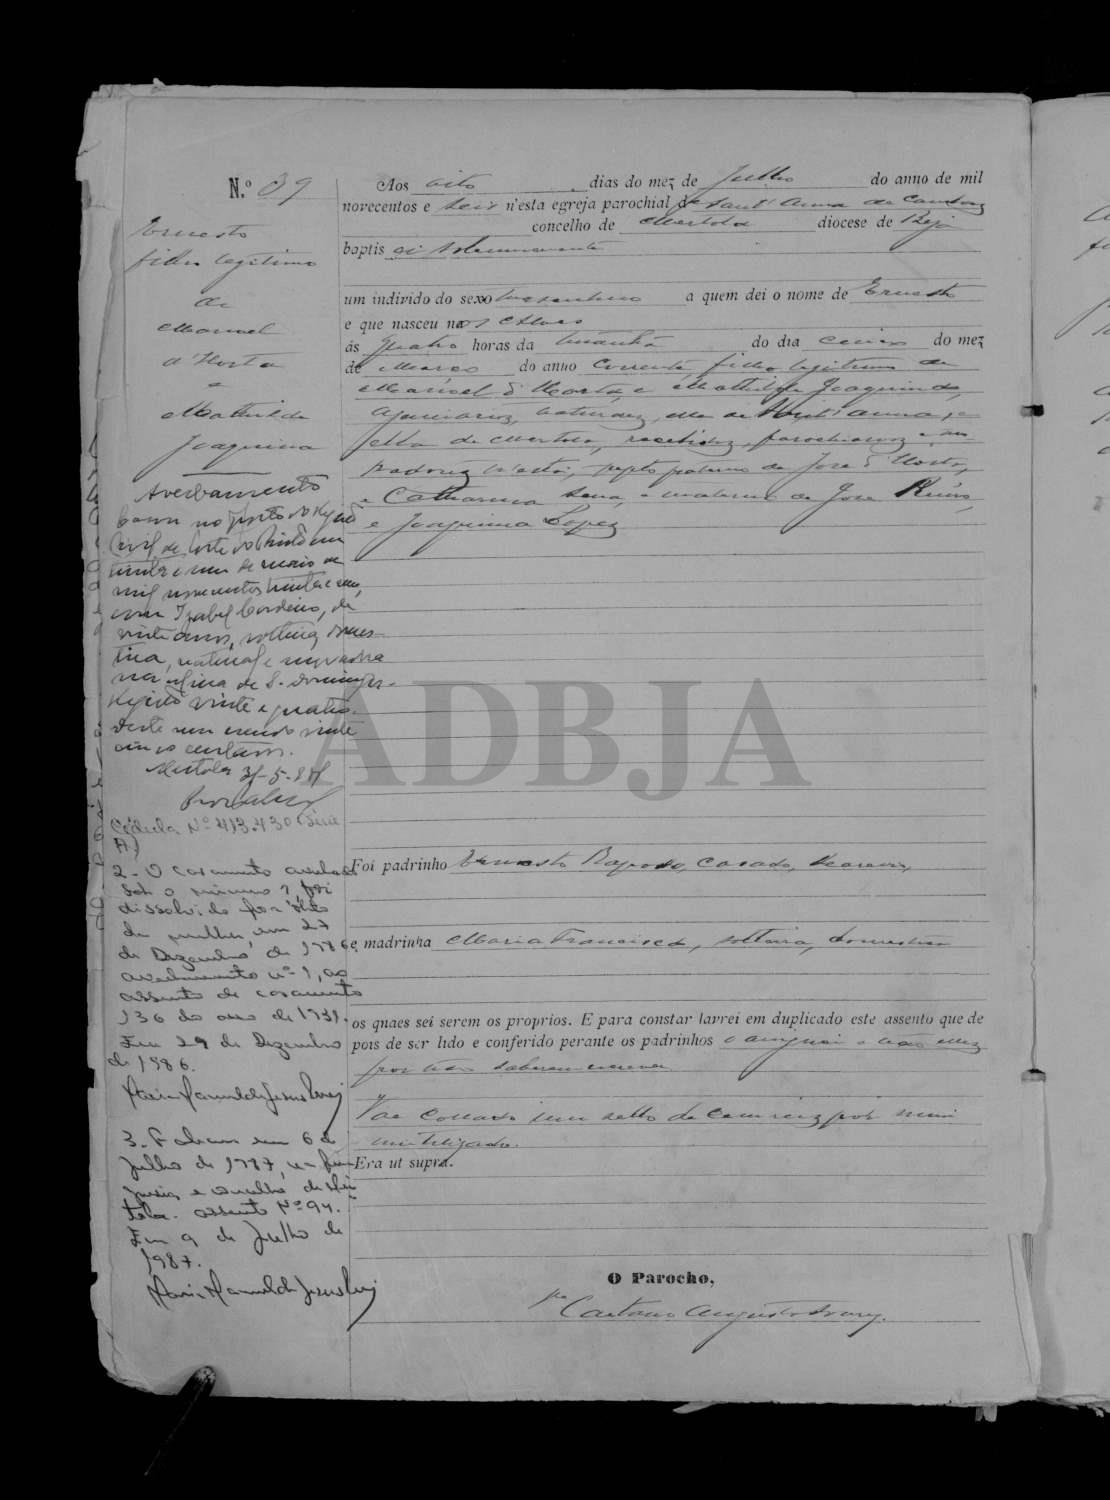 N.º 39
Ernesto
filho legitimo
de
Manoel
d'Horta
e
Mathilde
Joaquina
Averbamento
Casou no Posto do Registo
Civil de Corte do Pinto em
trinta e um de maio de
mil novecentos trinta e um,
com Izabel Cordeiro, de
vinte anos, solteira, domes-
tica, natural e moradora
na mina de S. Domingos.
Registo vinte e quatro.
Deste um escudo vinte
cinco centavos.
Mertola 31-5-931
Cédula Nº 413.430 (Série
A)
2 - O casamento averbado
sob o número 1, foi
dissolvido por óbito
da mulher, em 27
de Dezembro de 1986,
averbamento nº 1, ao
assento de casamento
136 do ano de 1931.
Em 29 de Dezembro
de 1986.
3. Faleceu em 6 de
Julho de 1987, na fre
guesia e concelho de Mér
tola. assento Nº 94.
Em 9 de Julho de
1987.
Aos oito dias do mez de Julho do anno de mil
novecentos e seis n'esta egreja parochial de Sant'Anna de Cambas
concelho de Mertola diocese de Beja
baptisei solemnemente
um individo do sexo masculino a quem dei o nome de Ernesto
e que nasceu nos Alves
ás quatro horas da manhã do dia cinco do mez
de Março do anno corrente, filho legitimo de
Manoel d'Horta, e Mathilde Joaquina,
naturaes, elle de Sant'Anna, e
ella de Mertola, recebidos, parochianos e mo
radores n'esta, neto paterno de José d'Horta,
e Catharina Sena, e materno de José
e Joaquina Lopes
Foi padrinho Ernesto Raposo, casado,
e madrinha Maria Francisca, solteira, domestica
os quaes sei serem os proprios. E para constar lavrei em duplicado este assento que de
pois de ser lido e conferido perante os padrinhos o assignei e não elles
por não saberem escrever
Vae collado um sello de cem reis por mim
inutilizado.
Era ut supra.
O Parocho,
Caetano Augusto
ADBJA